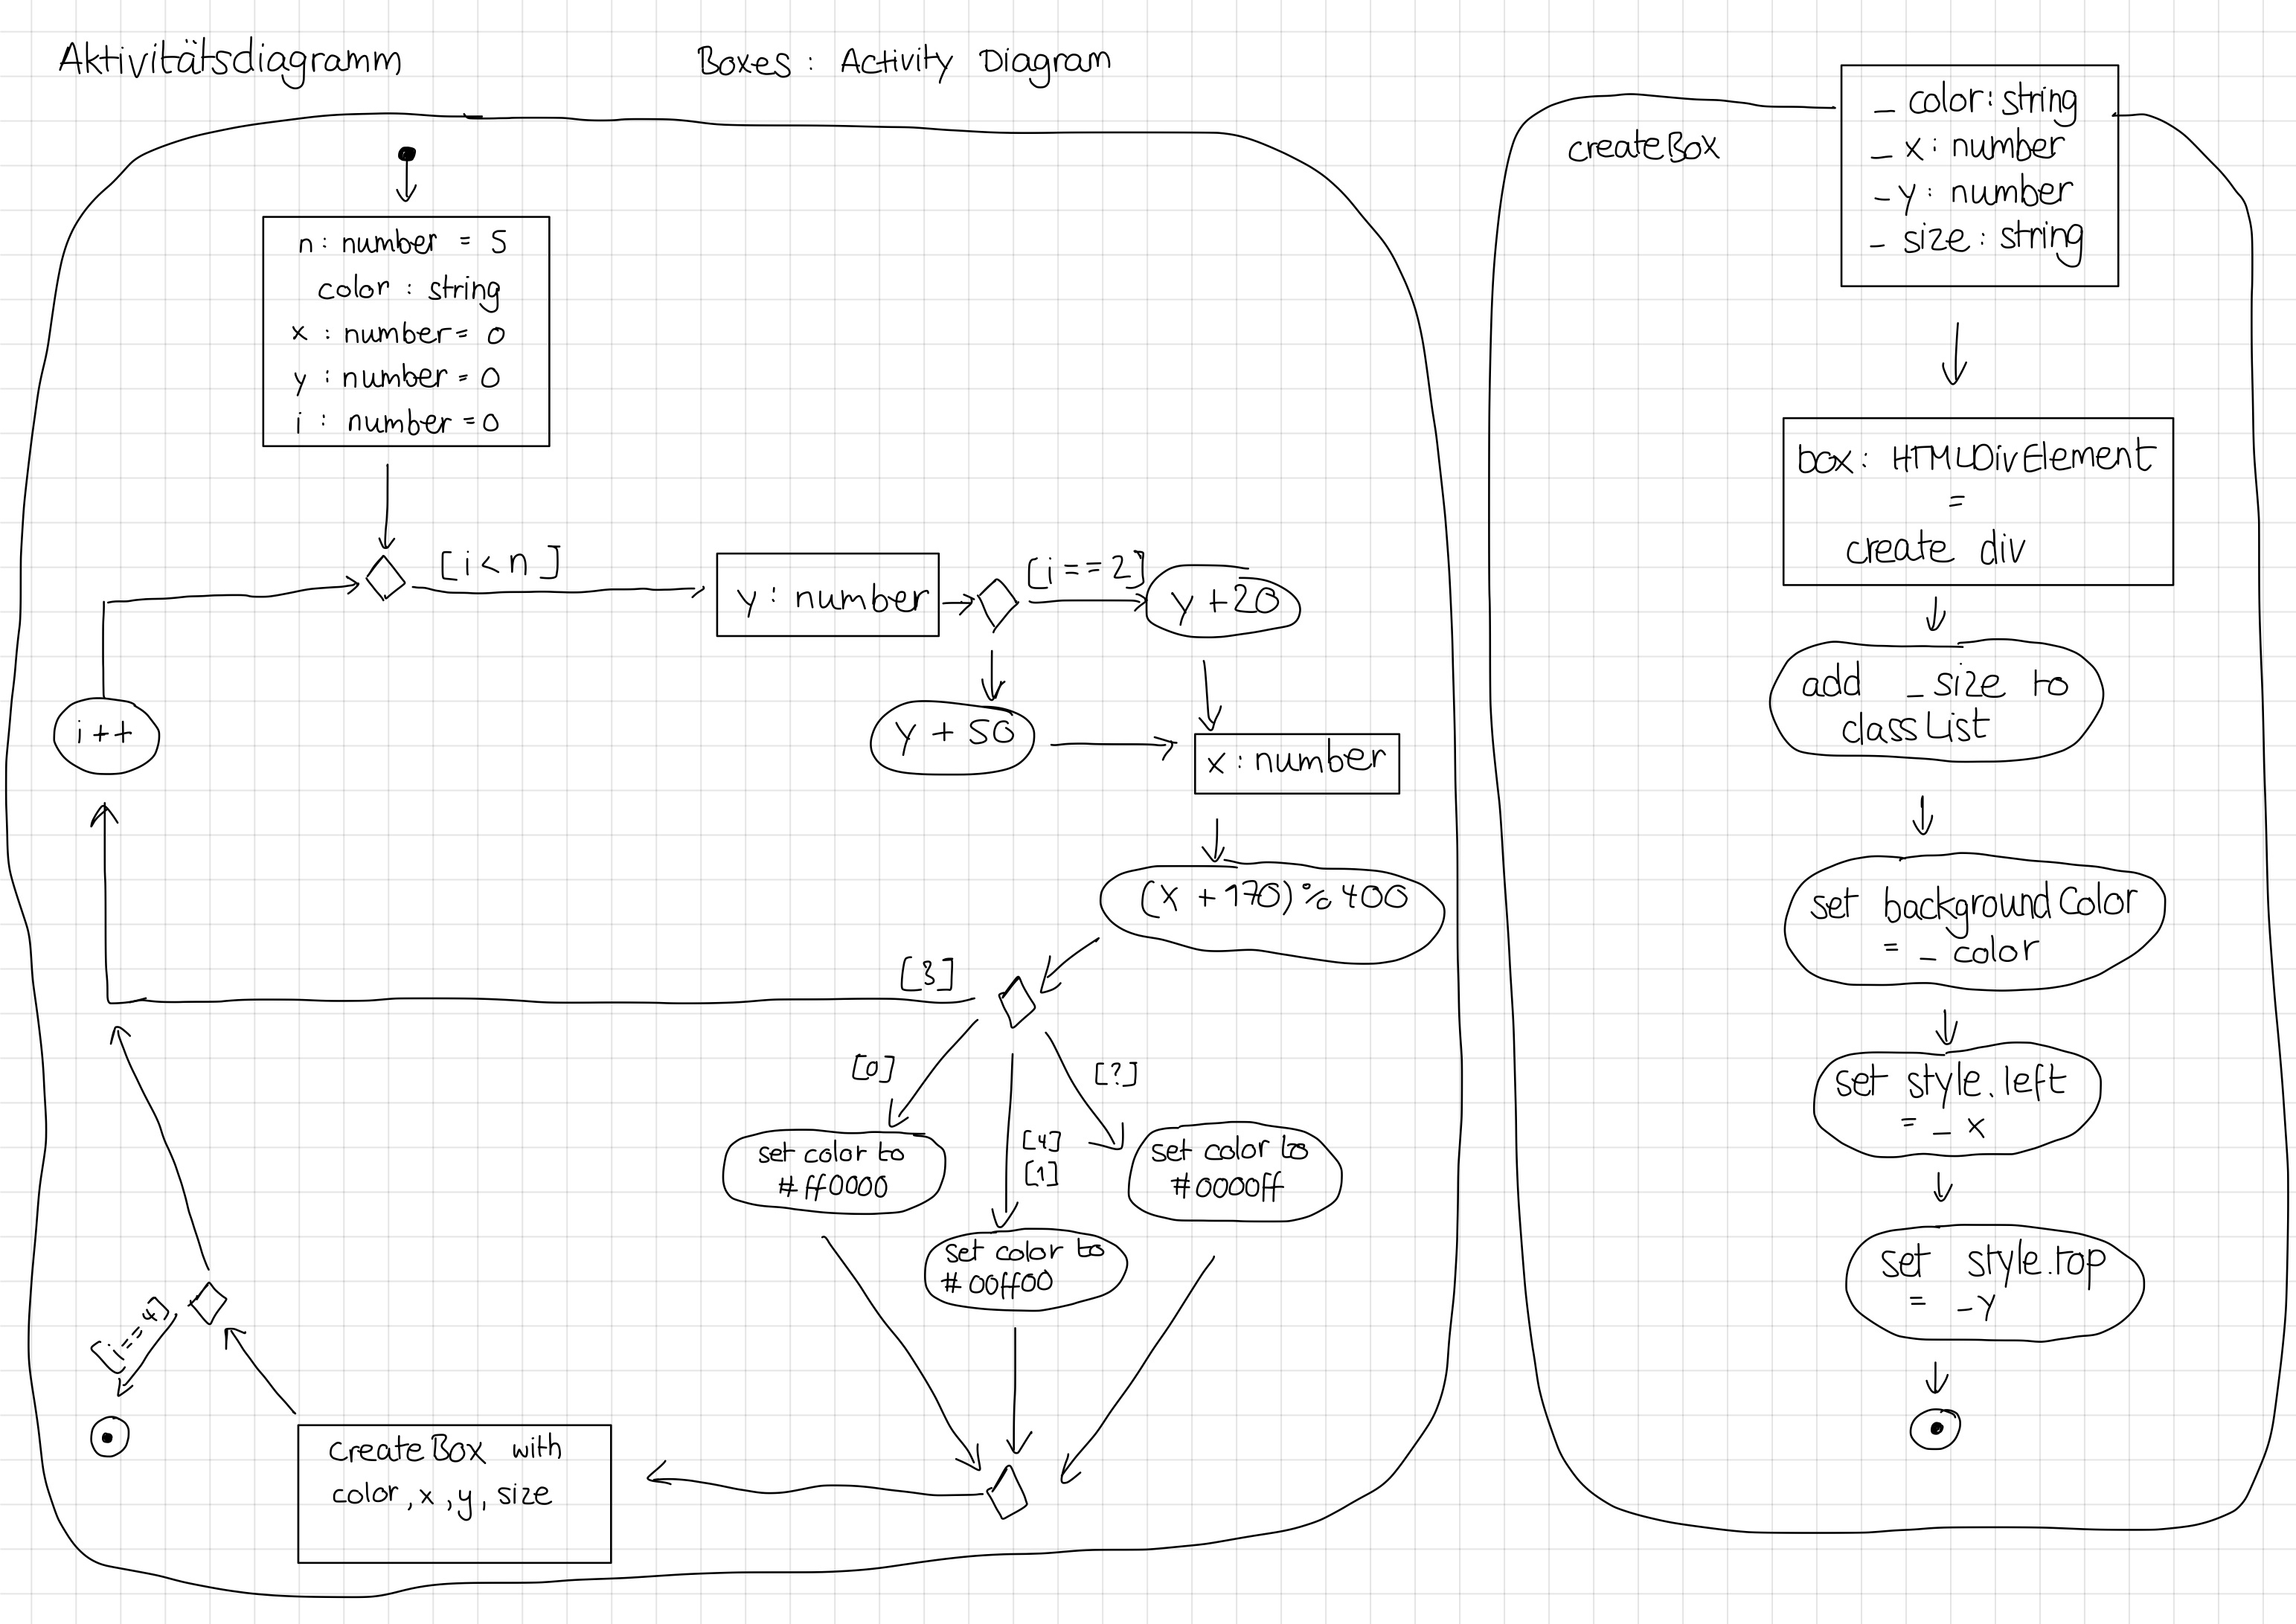 Aktivitätsdiagramm
Boxes : Activity Diagram
n : number = 5
color : string
x : number = 0
y : number = 0
i : number = 0
[i < n ]
y : number
[i == 2]
y + 20
y + 50
x : number
(x + 170) % 400
i ++
[3]
[0]
[?]
[4]
[1]
set color to
# ff0000
set color to
# 0000ff
set color to
# 00ff00
[i == 4]
createBox with
color, x, y, size
createBox
_ color: string
_ x : number
_ y : number
_ size : string
box : HTMLDivElement
=
create div
add _ size to
classList
set backgroundColor
= _ color
set style.left
= _ x
set style.top
= _ y